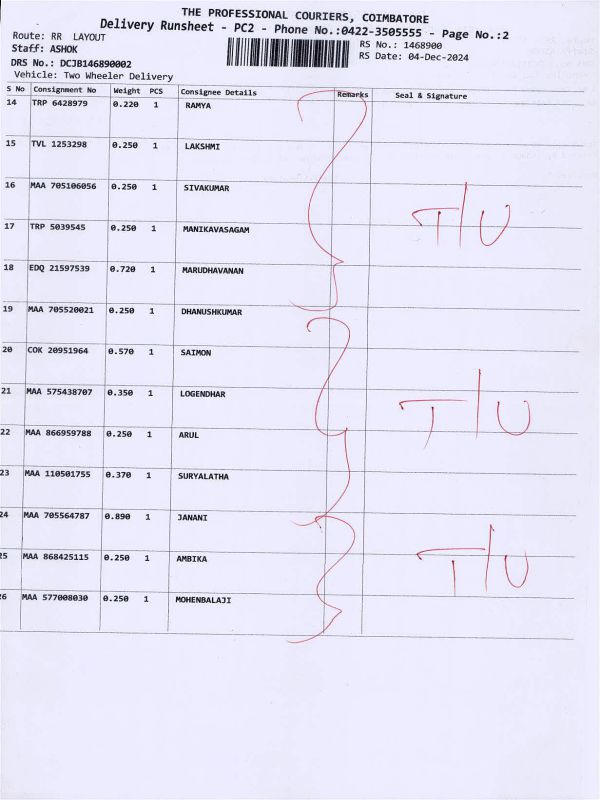 THE PROFESSIONAL COURIERS, COIMBATORE
Delivery Runsheet - PC2 - Phone No.:0422-3505555 - Page No.:2
Route: RR LAYOUT
RS No.: 1468900
Staff: ASHOK
RS Date: 04-Dec-2024
DRS No.: DCJB146890002
Vehicle: Two Wheeler Delivery
S No Consignment No Weight PCS Consignee Details Remarks Seal & Signature
14 TRP 6428979 0.220 1 RAMYA
15 TVL 1253298 0.250 1 LAKSHMI
16 MAA 705106056 0.250 1 SIVAKUMAR
T/U
17 TRP 5039545 0.250 1 MANIKAVASAGAM
18 EDQ 21597539 0.720 1 MARUDHAVANAN
19 MAA 705520021 0.250 1 DHANUSHKUMAR
20 COK 20951964 0.570 1 SAIMON
21 MAA 575438707 0.350 1 LOGENDHAR
T/U
22 MAA 866959788 0.250 1 ARUL
23 MAA 110501755 0.370 1 SURYALATHA
24 MAA 705564787 0.890 1 JANANI
25 MAA 868425115 0.250 1 AMBIKA
T/U
26 MAA 577008030 0.250 1 MOHENBALAJI